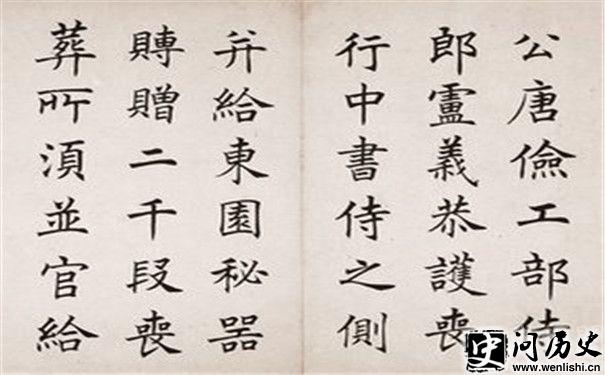 公唐儉工部侍
郎盧義恭護喪
行中書侍之側
并給東園秘器
賻贈二千段喪
葬所湏並官給
问历史
www.wenlishi.cn